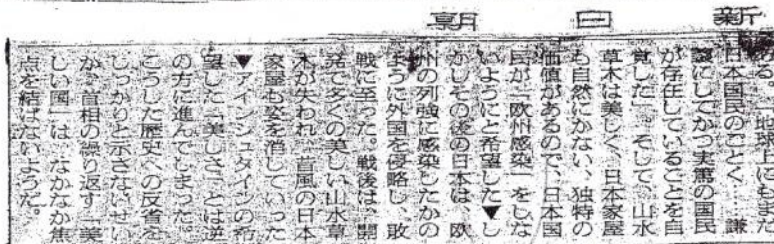 新 日 朝
ある。「地球上にもまた
日本国民のごとく…謙
譲にしてかつ実篤の国民
が存在していることを自
覚した」。そして、山水
草木は美しく、日本家屋
も自然にかない、独特の
価値があるので、日本国
民が「欧州感染」をしな
いようにと希望した▼し
かしその後の日本は、欧
州の列強に感染したかの
ように外国を侵略し、敗
戦に至った。戦後は、開
発で多くの美しい山水草
木が失われ、昔風の日本
家屋も姿を消していった
▼アインシュタインの希
望した「美しさ」とは逆
の方に進んでしまった。
こうした歴史への反省を
しっかりと示さないせい
か、首相の繰り返す「美
しい国」は、なかなか焦
点を結ばないようだ。